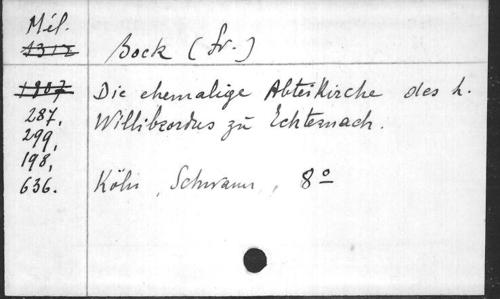 Mél.
1312 Bock (Fr.)
1907 Die ehemalige Abteikirche des h.
287, Willibrordus zu Echternach.
299,
198,
636. Köln, Schwann, 8º